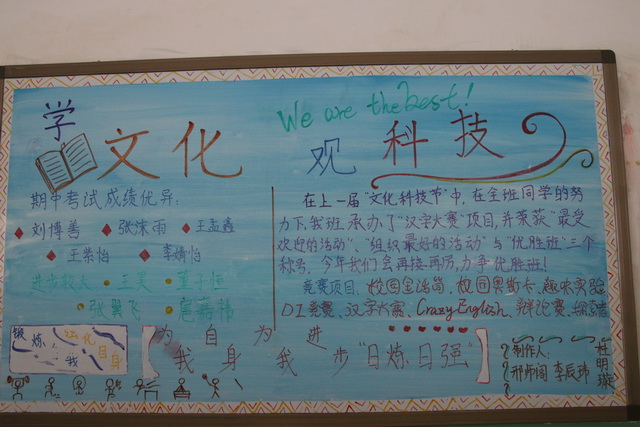 We are the best!
学文化 观科技
期中考试成绩优异:
刘博善 张沫雨 王孟鑫
王紫怡 李婧怡
进步较大 王昊 董子恒
张翼飞
在上一届"文化科技节"中,在全班同学的努
力下,我班承办了"汉字大赛"项目,并荣获"最受
欢迎的活动"、"组织最好的活动"与"优胜班"三个
称号,今年我们会再接再厉,力争优胜班!
竞赛项目:校园金话筒、校园奥斯卡、趣味实验
DI竞赛、汉字大赛、Crazy English、辩论赛、
锻炼 红化
我 自身
为自为进
我身我步"日炼日强"
制作人: 杜明璇
邢师阁 李辰玮